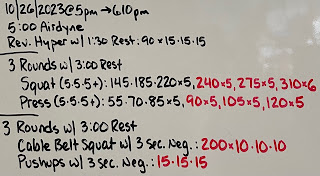 10/26/2023@5pm→6:10pm
5:00 Airdyne
Rev. Hyper w/ 1:30 Rest: 90×15·15·15
3 Rounds w/ 3:00 Rest
Squat (5·5·5+): 145·185·220×5, 240×5, 275×5, 310×6
Press (5·5·5+): 55·70·85×5, 90×5, 105×5, 120×5
3 Rounds w/ 3:00 Rest
Cable Belt Squat w/ 3 sec. Neg.: 200×10·10·10
Pushups w/ 3 sec. Neg.: 15·15·15